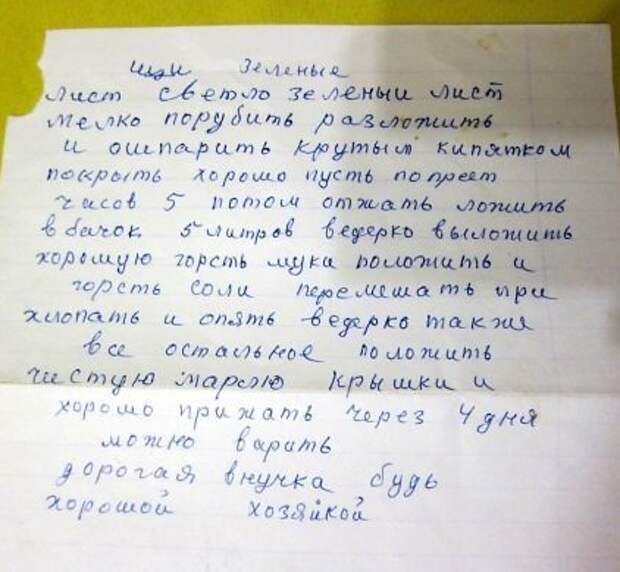 щи зеленые
лист светло зеленыи лист
мелко порубить разложить
и ошпарить крутым кипятком
покрыть хорошо пусть попреет
часов 5 потом отжать ложить
в бачок 5 литров ведерко выложить
хорошую горсть мука положить и
горсть соли перемешать при
хлопать и опять ведерко такжя
все остальное положить
чистую марлю крышки и
хорошо прижать через 4 дня
можно варить
дорогая внучка будь
хорошой хозяйкой